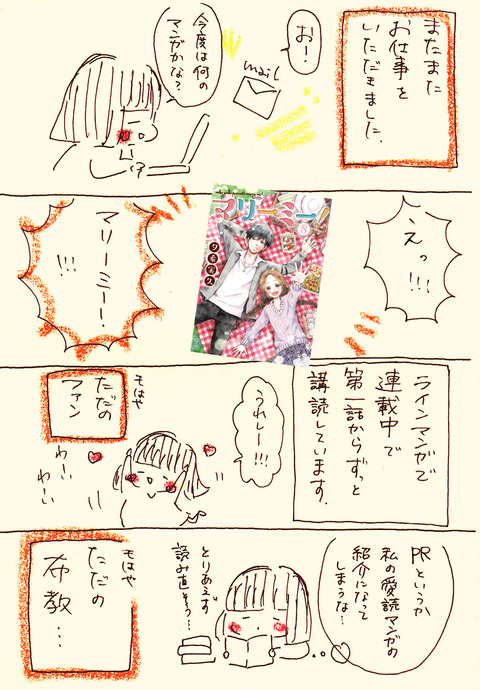 またまた
お仕事を
いただきました.
おー!
mail
今度は何の
マンガかな?
えっ!!!
マリーミー!
8
夕希実久
マリーミー!
!!!
ラインマンガで
連載中で
第一話からずっと
講読しています.
うれしー!!!
もはや
ただの
ファン
わーい
わーい
PRというか
私の愛読マンガの
紹介になって
しまうな…
とりあえず
読み直そう…
もはや
ただの
布教…